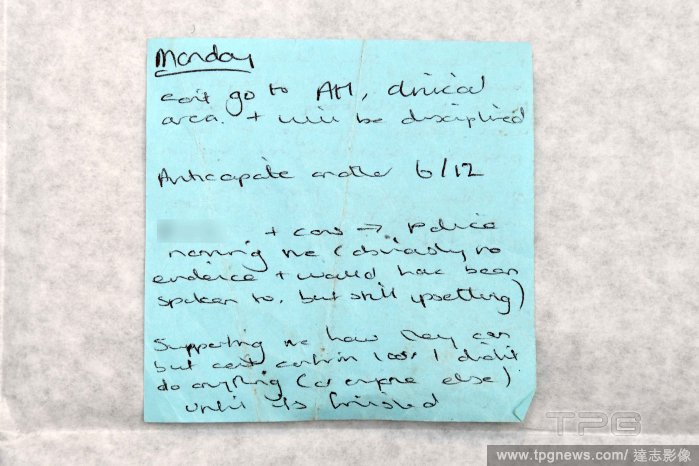 Monday
can't go to AH, clinical
area. + will be disciplined
Anticipate another 6/12
+ cons → police
naming me (obviously no
evidence + would have been
spoken to, but still upsetting)
Supporting me how they can
but can't confirm 100% I didn't
do anything (or anyone else)
until is finished
TPG
www.tpgnews.com/ 達志影像